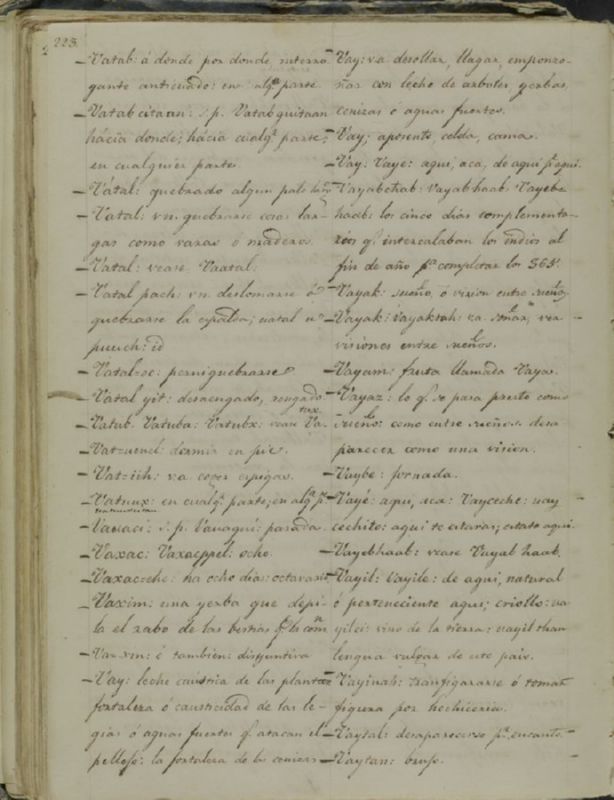 223.
– Vatab: á donde por donde interro-
gante anticuado: en algª parte.
– Vatab citaan: s. p. Vatab quitaan
hácia donde; hácia cualqª parte;
en cualquier parte
– Vatal: quebrado algun palo
– Vatal: vn. quebrarse cosas lar-
gas como varas ó maderos.
– Vatal: vease Vaatal.
– Vatal pach: vn. deslomarse ó
quebrarse la espalda; uatal
puuch: id
– Vatal-oc: perniquebrarse
– Vatal yit: desaengado,
– Vatub. Vatuba: Vatubx: vease Va-
tux.
– Vatzuenel: dormir en pie.
– Vatziih: va. coger espigas.
– Vatuux: en cualqª parte; en algª pte
– Vauaci: s. p. Vauaqui: parada.
– Vaxac: Vaxacppel: ocho.
– Vaxacche: ha ocho dias: octavario
– Vaxim: una yerba que depi-
la el rabo de las bestias q. la comn
– Vaxxin: é tambien: disyuntiva
– Vay: leche caústica de las plantas
fortaleza ó causticidad de las le-
gias ó aguas fuertes q. atacan el
pellejo: la fortaleza de las cenizas
– Vay: va. desollar, llagar, emponzo-
ñar con leche de arboles, yerbas,
cenizas ó aguas fuertes.
– Vay; aposento, celda, cama.
– Vay: Vaye: aqui, aca, de aqui pr. aqui.
– Vayabchab: Vayabhaab: Vayebe
haab: los cinco dias complementa-
rios q. intercalaban los indios al
fin de año pª completar los 365.
– Vayak: sueño, ó vision entre sueños
– Vayak: Vayaktah: va. soñar, ver
visiones entre sueños.
– Vayam: fruta llamada Vaya.
– Vayaz: lo q. se pasa presto como
sueño: como entre sueños desa-
parecer como una vision.
– Vaybe: jornada.
– Vayé: aqui, aca: Vayceche: uay
cechito: aqui te estaras; estate aqui.
– Vayebhaab: vease Vayab haab.
– Vayil: Vayile: de aqui, natural
ó perteneciente aqui; criollo: ua
yilci: vino de la tierra: uayil than
lengua vulgar de este pais.
– Vayinah: tranfigurarse ó tomar
figura por hechiceria.
– Vaytal: desaparecerse pr. encanto.
– Vaytan: brujo.